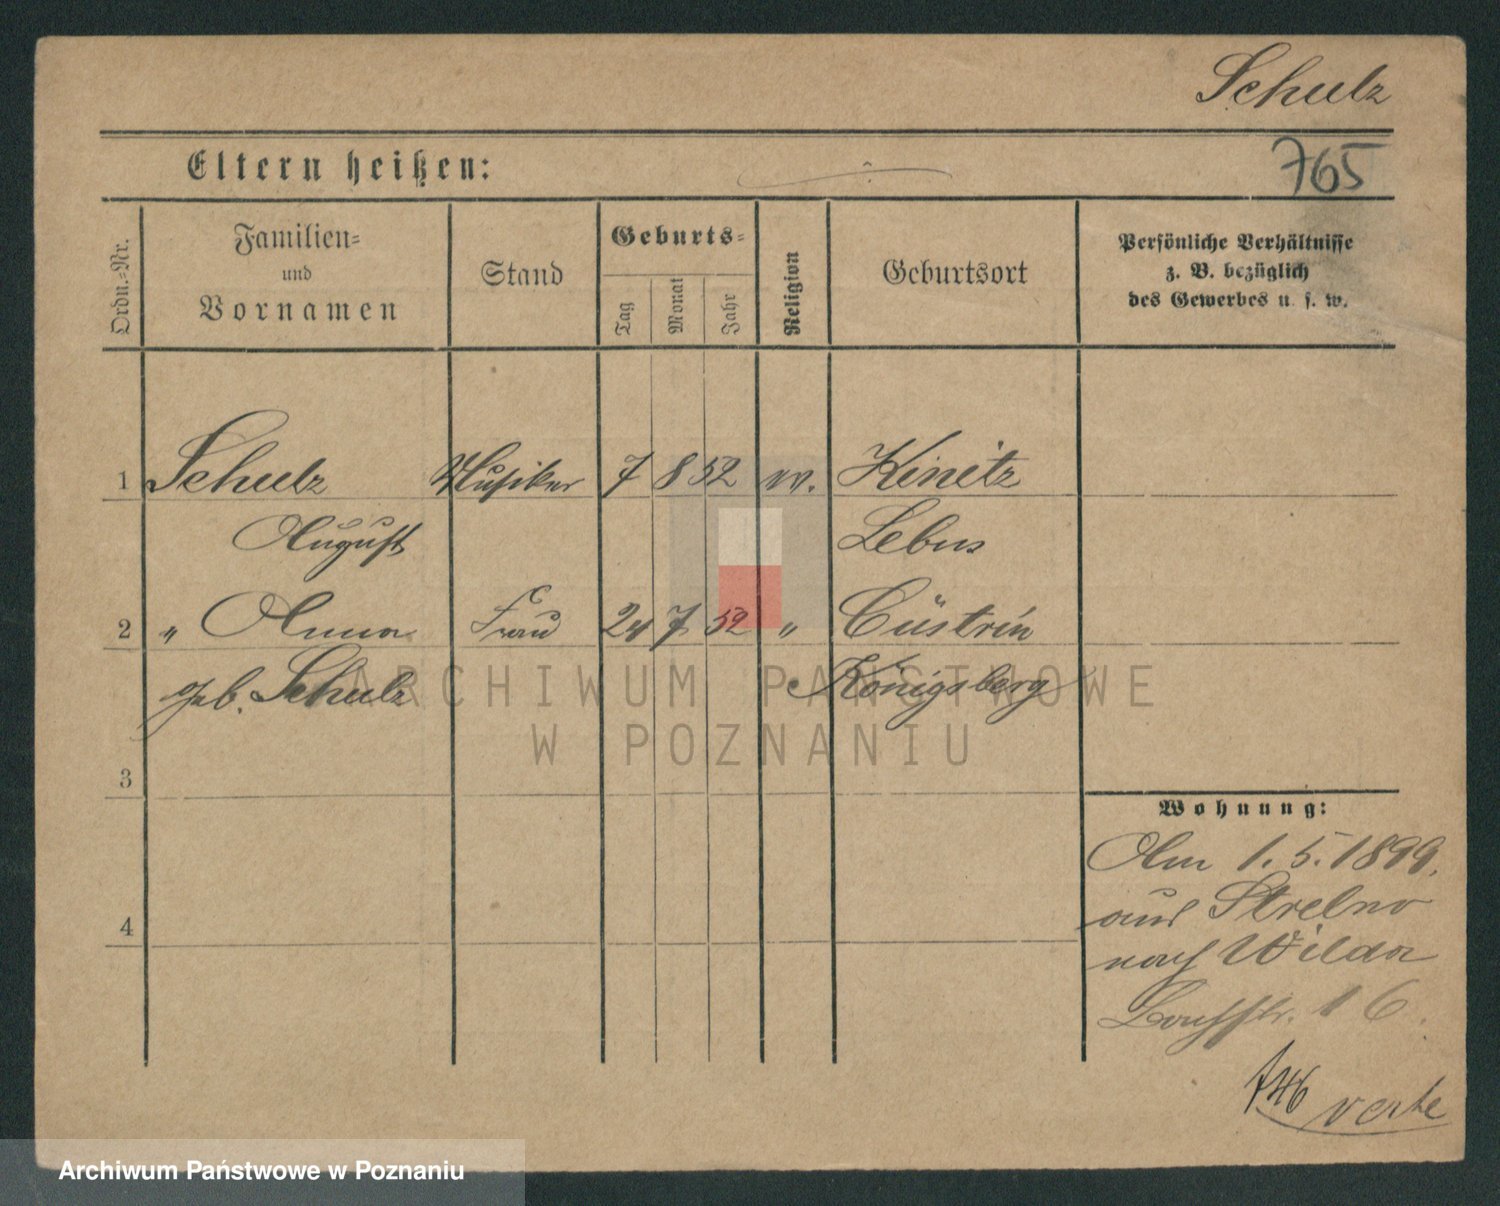 Schulz
Eltern heißen:
765
Ordn.-Nr.
Familien-
und
Vornamen
Stand
Geburts-
Tag
Monat
Jahr
Religion
Geburtsort
Persönliche Verhältnisse
z. B. bezüglich
des Gewerbes u. s. w.
1 Schulz Musiker 7 8 52 ev. Kinitz
August Lebus
2 " Anna Frau 24 7 52 " Cüstrin
geb. Schulz Königsberg
3
4
Wohnung:
Am 1.5.1899.
aus Strelno
nach Wilda
Bachstr. 16.
verte
ARCHIWUM PAŃSTWOWE
W POZNANIU
Archiwum Państwowe w Poznaniu